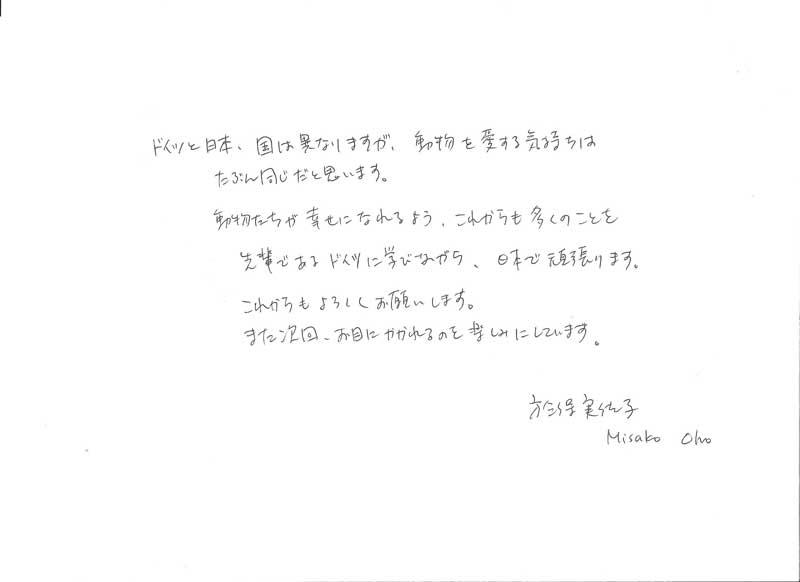 ドイツと日本、国は異なりますが、動物を愛する気持ちは
たぶん同じだと思います。
動物たちが幸せになれるよう、これからも多くのことを
先輩であるドイツに学びながら、日本で頑張ります。
これからもよろしくお願いします。
また次回、お目にかかれるのを楽しみにしています。
於保実佐子
Misako Oho